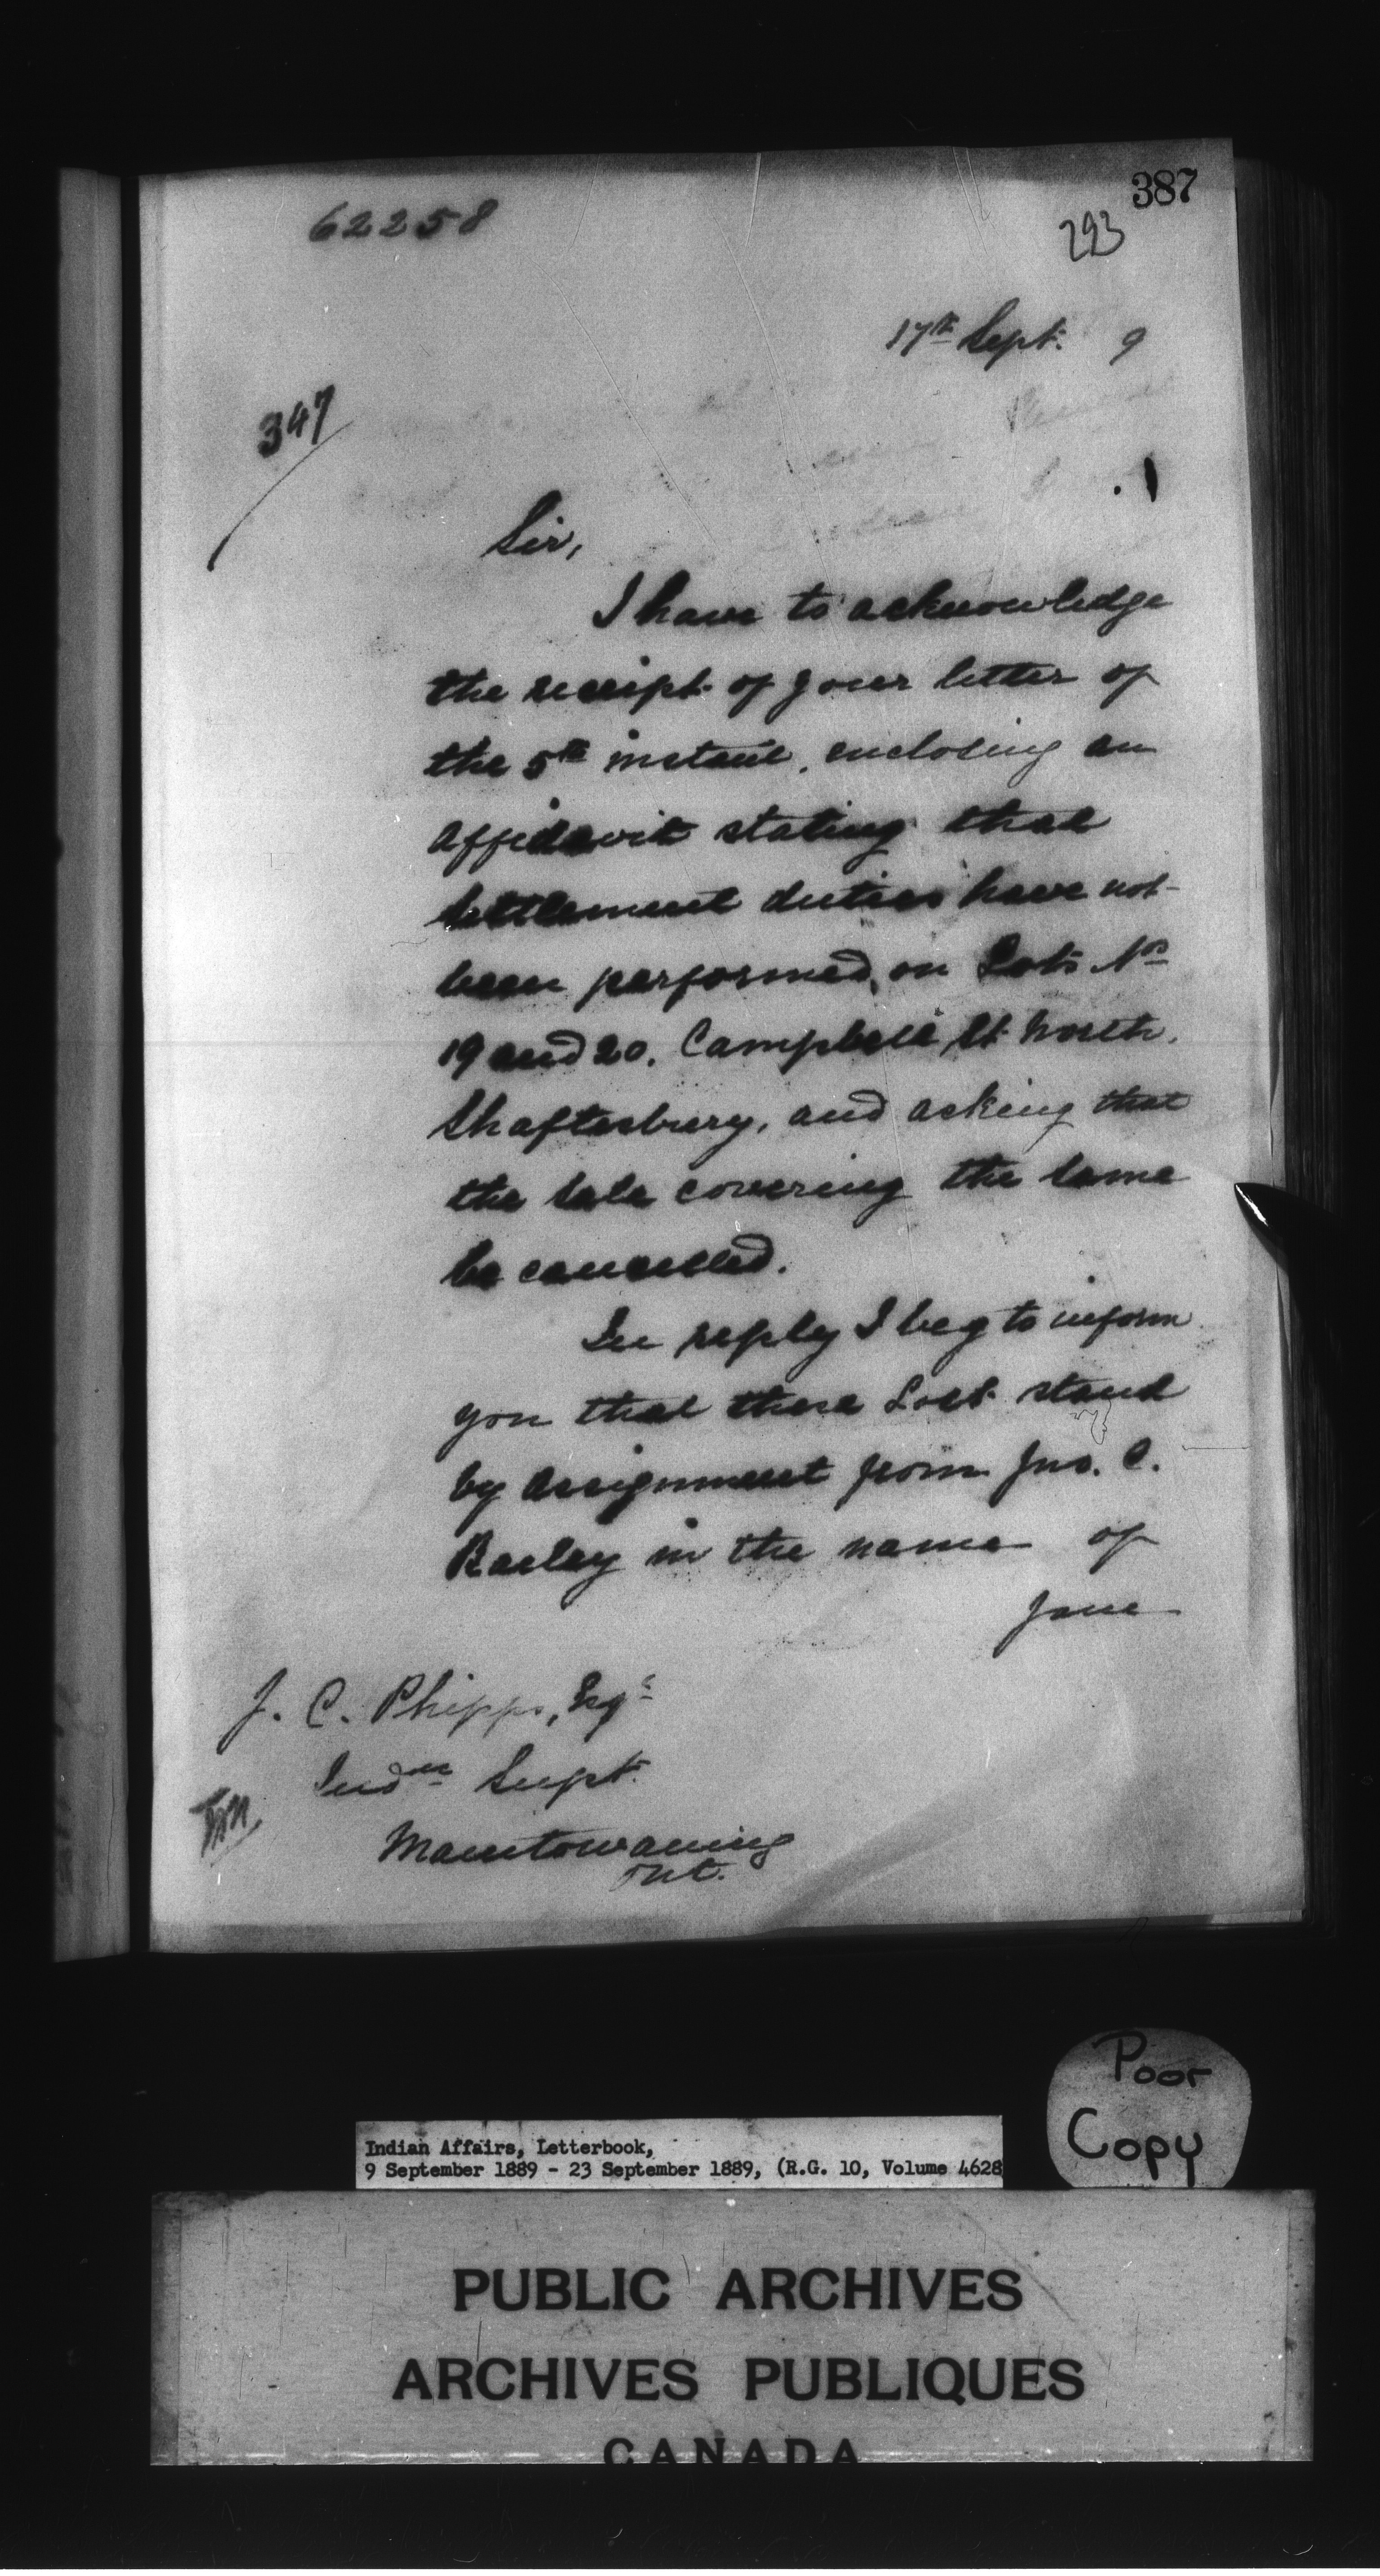 387
62258
293
17th Sept. 9
347
Sir,
I have to acknowledge
the receipt of your letter of
the 5th instant, enclosing an
affidavit stating that
settlement duties have not
been performed, on Lots Nos
19 and 20, Campbell St. North,
Shaftesbury, and asking that
the sale covering the same
be cancelled.
In reply I beg to inform
you that these Lots stand
by assignment from Jno. C.
in the name of
Jane
J. C. Phipps, Esqr
Indn Supt.
Manitowaning
Ont.
Poor
Copy
Indian Affairs, Letterbook,
9 September 1889 - 23 September 1889, (R.G. 10, Volume 4628
PUBLIC ARCHIVES
ARCHIVES PUBLIQUES
CANADA